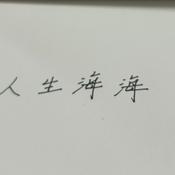 人生海海